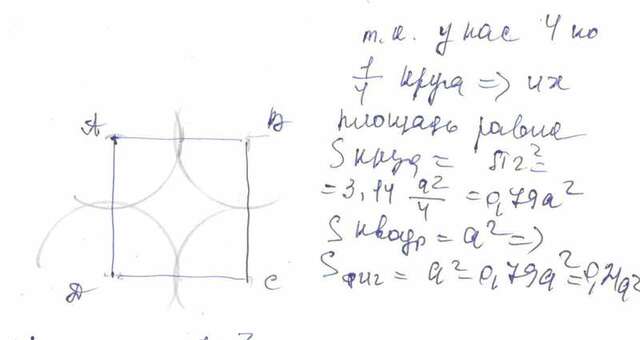 A
B
D
C
т.к. у нас 4 по
1/4 круга => их
площадь равна
S круга = πr² =
= 3,14 a²/4 = 0,79a²
S квадр = a² =>
S фиг = a² - 0,79a² = 0,21a²